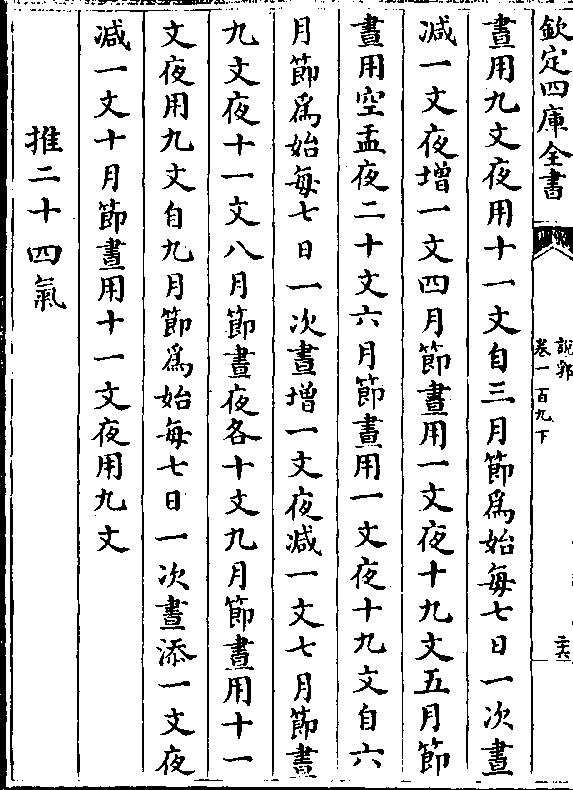 欽定四庫全書
說郛
卷一百九下
二六
晝用九文夜用十一文自三月節爲始每七日一次晝
减一文夜增一文四月節晝用一文夜十九文五月節
晝用空盂夜二十文六月節晝用一文夜十九文自六
月節爲始每七日一次晝增一文夜减一文七月節晝
九文夜十一文八月節晝夜各十文九月節晝用十一
文夜用九文自九月節爲始每七日一次晝添一文夜
减一文十月節晝用十一文夜用九文
推二十四氣